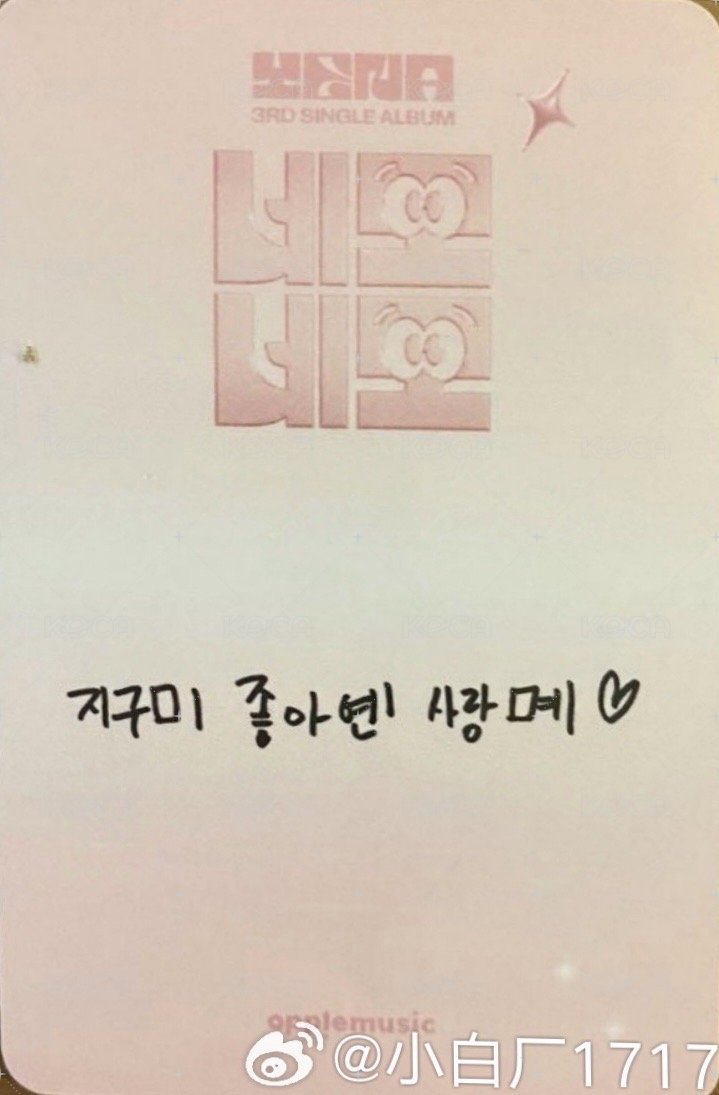 YENA
3RD SINGLE ALBUM
네모
네모
지구미 좋아옌 사랑몌♡
applemusic
@小白厂1717